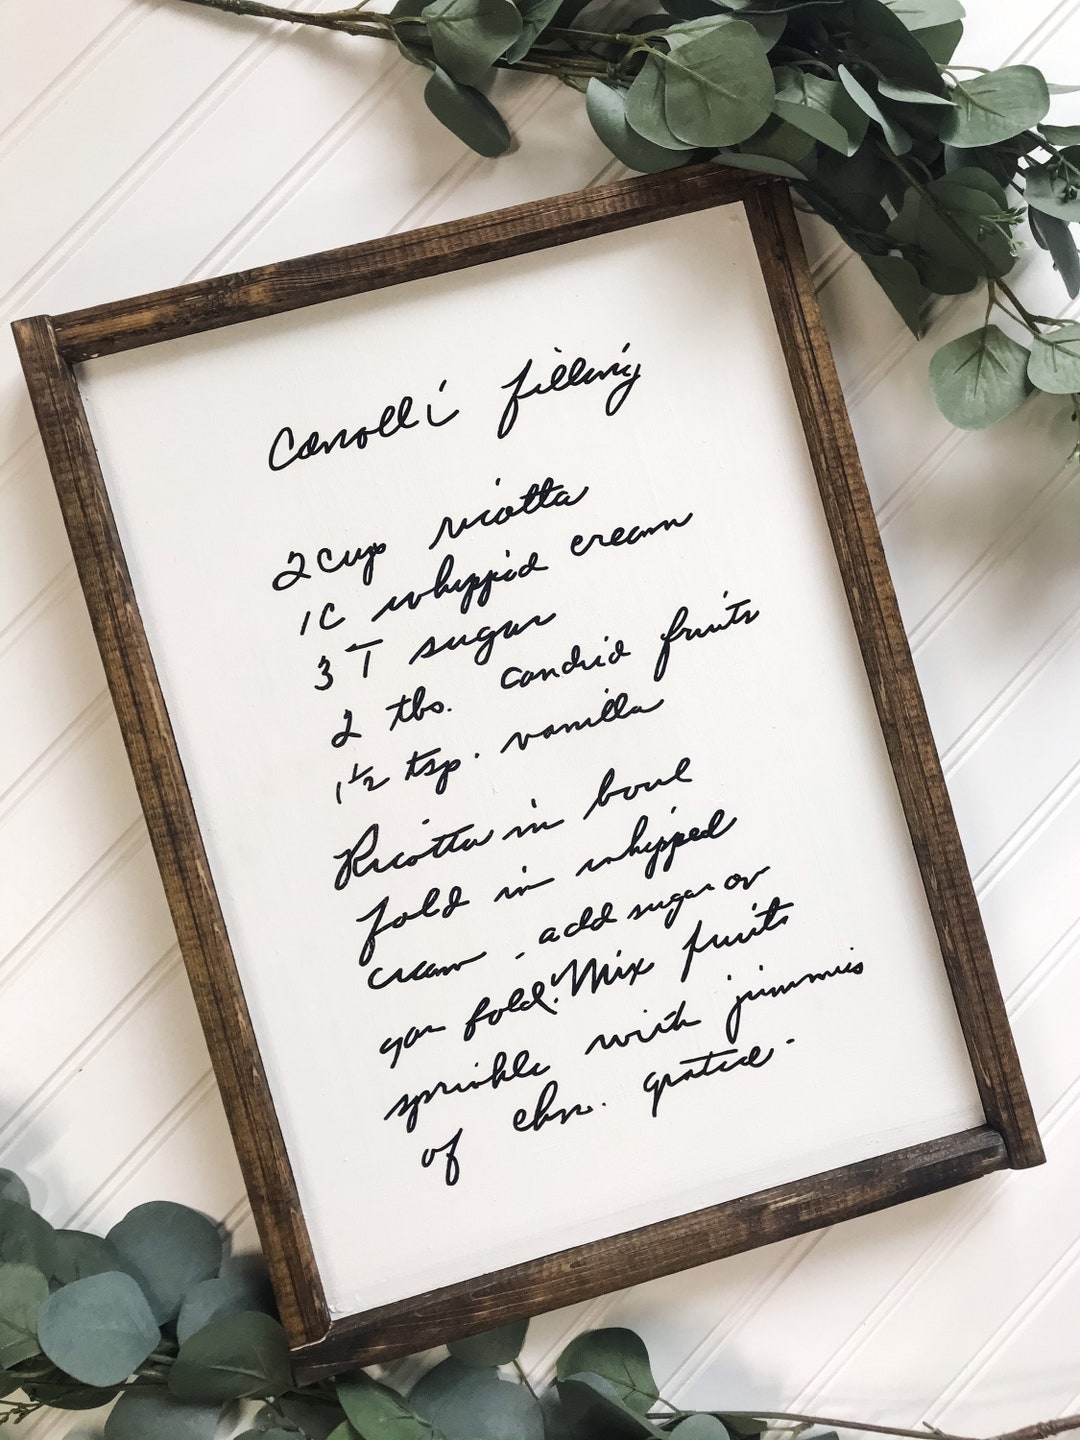 Canolli filling
2 cup ricotta
1C whippid cream
3 T sugar
2 tbs. candid fruits
1 1/2 tsp. vanilla
Ricotta in bowl
fold in whipped
cream - add sugar as
you fold. Mix fruits
sprinkle with jimmies
of chn. grated.